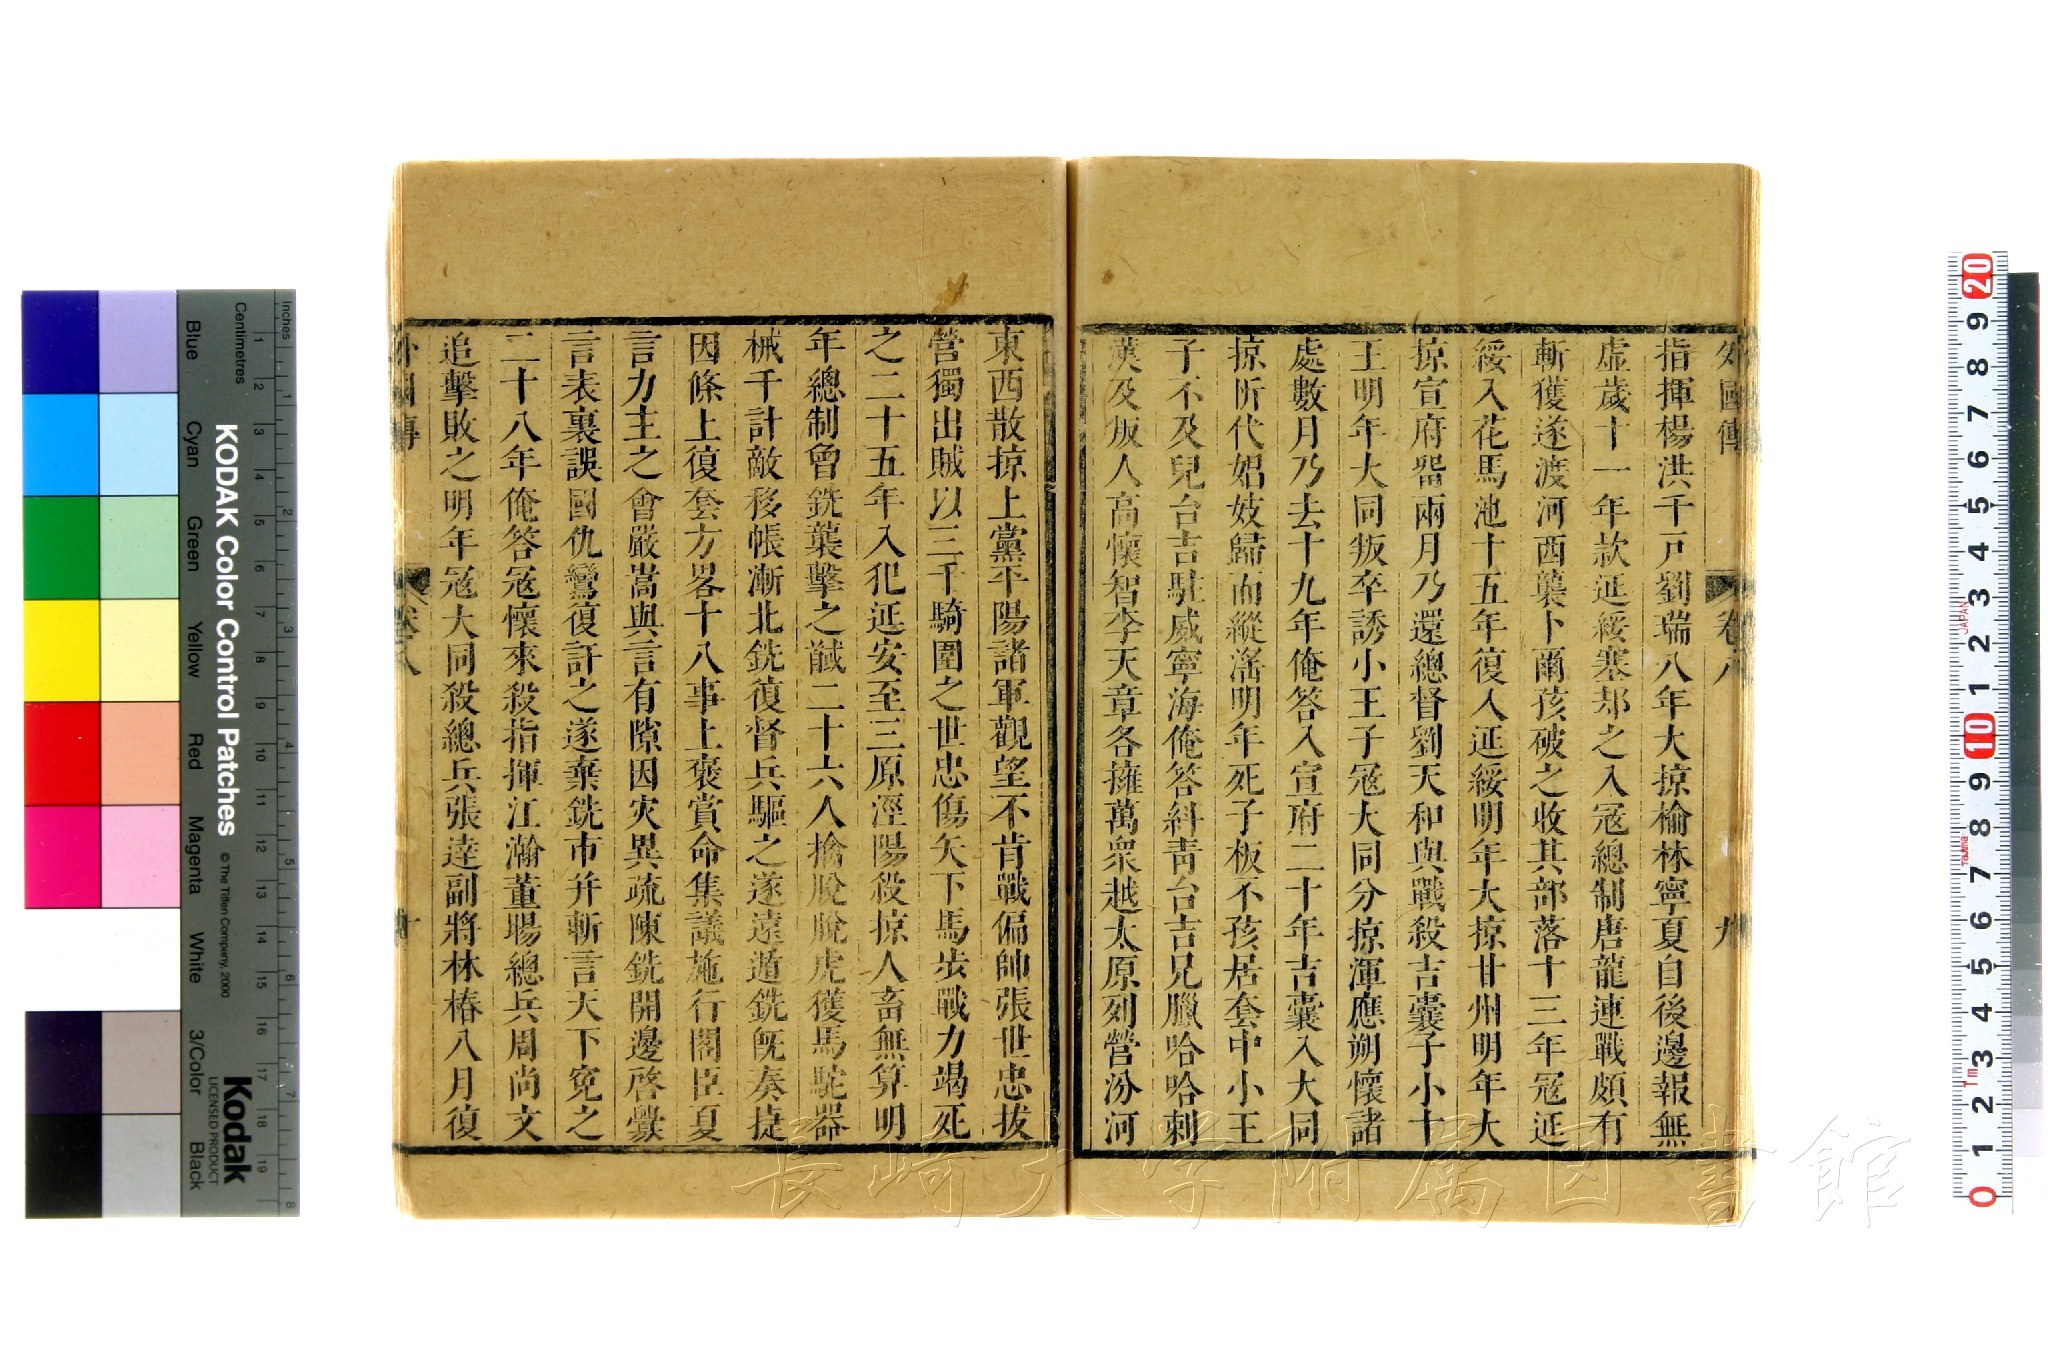 外國傳 卷八 九
指揮楊洪千戸劉瑞八年大掠榆林寧夏自後邊報無
虛歲十一年款延綏塞却之入寇總制唐龍連戰頗有
斬獲遂渡河西襲卜爾孩破之收其部落十三年寇延
綏入花馬池十五年復入延綏明年大掠甘州明年大
掠宣府畱兩月乃還總督劉天和與戰殺吉囊子小十
王明年大同叛卒誘小王子寇大同分掠渾應朔懷諸
處數月乃去十九年俺答入宣府二十年吉囊入大同
掠所代娼妓歸而縱滛明年死子板不孩居套中小王
子不及兒台吉駐威寧海俺答糾青台吉兄臘哈哈刺
漢及叛人高懷智李天章各擁萬衆越太原列營汾河
東西散掠上黨平陽諸軍觀望不肯戰偏帥張世忠拔
營獨出賊以三千騎圍之世忠傷矢下馬步戰力竭死
之二十五年入犯延安至三原涇陽殺掠人畜無算明
年總制曾銑襲擊之馘二十六人擒脫脫虎獲馬駝器
械千計敵移帳漸北銑復督兵驅之遂遠遁銑旣奏捷
因條上復套方畧十八事上褒賞命集議施行閣臣夏
言力主之會嚴嵩與言有隙因灾異疏陳銑開邊啓釁
言表裏誤國仇鸞復訐之遂棄銑市并斬言天下寃之
二十八年俺答寇懷來殺指揮江瀚董暘總兵周尚文
追擊敗之明年寇大同殺總兵張達副將林椿八月復
外國傳 卷八 十
Blue
Cyan
Green
Yellow
Red
Magenta
White
3/Color
Black
Inches
Centimetres
KODAK Color Control Patches
© The Tiffen Company, 2000
Kodak
LICENSED PRODUCT
長崎大学附属図書館
JAPAN